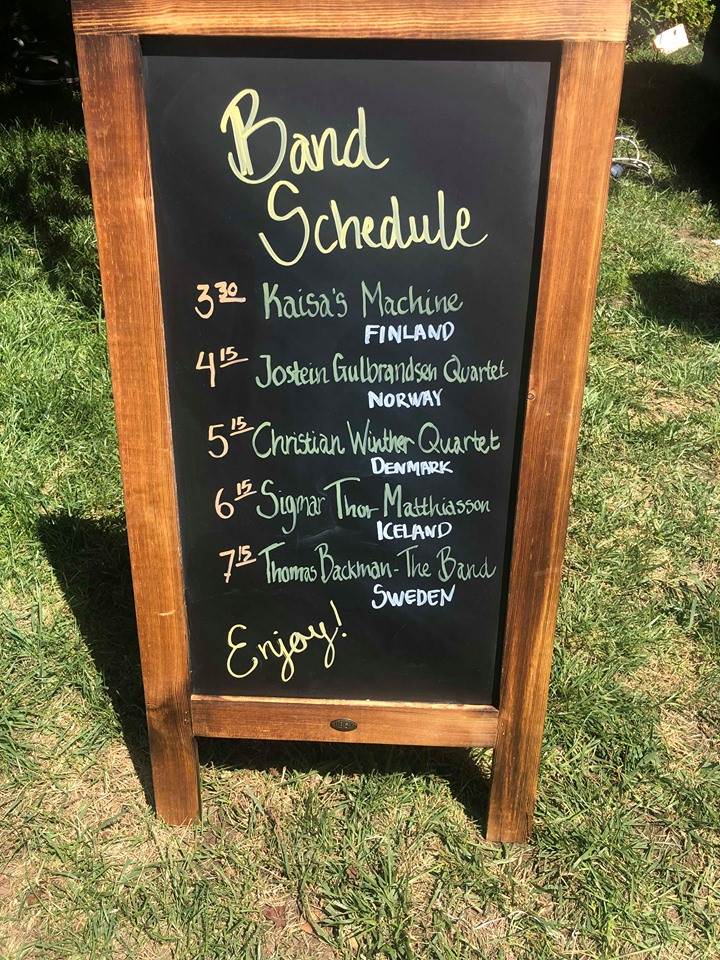 Band
Schedule
3 30 Kaisa's Machine
FINLAND
4 15 Jostein Gulbrandsen Quartet
NORWAY
5 15 Christian Winther Quartet
DENMARK
6 15 Sigmar Thor Matthiasson
ICELAND
7 15 Thomas Backman - The Band
SWEDEN
Enjoy!